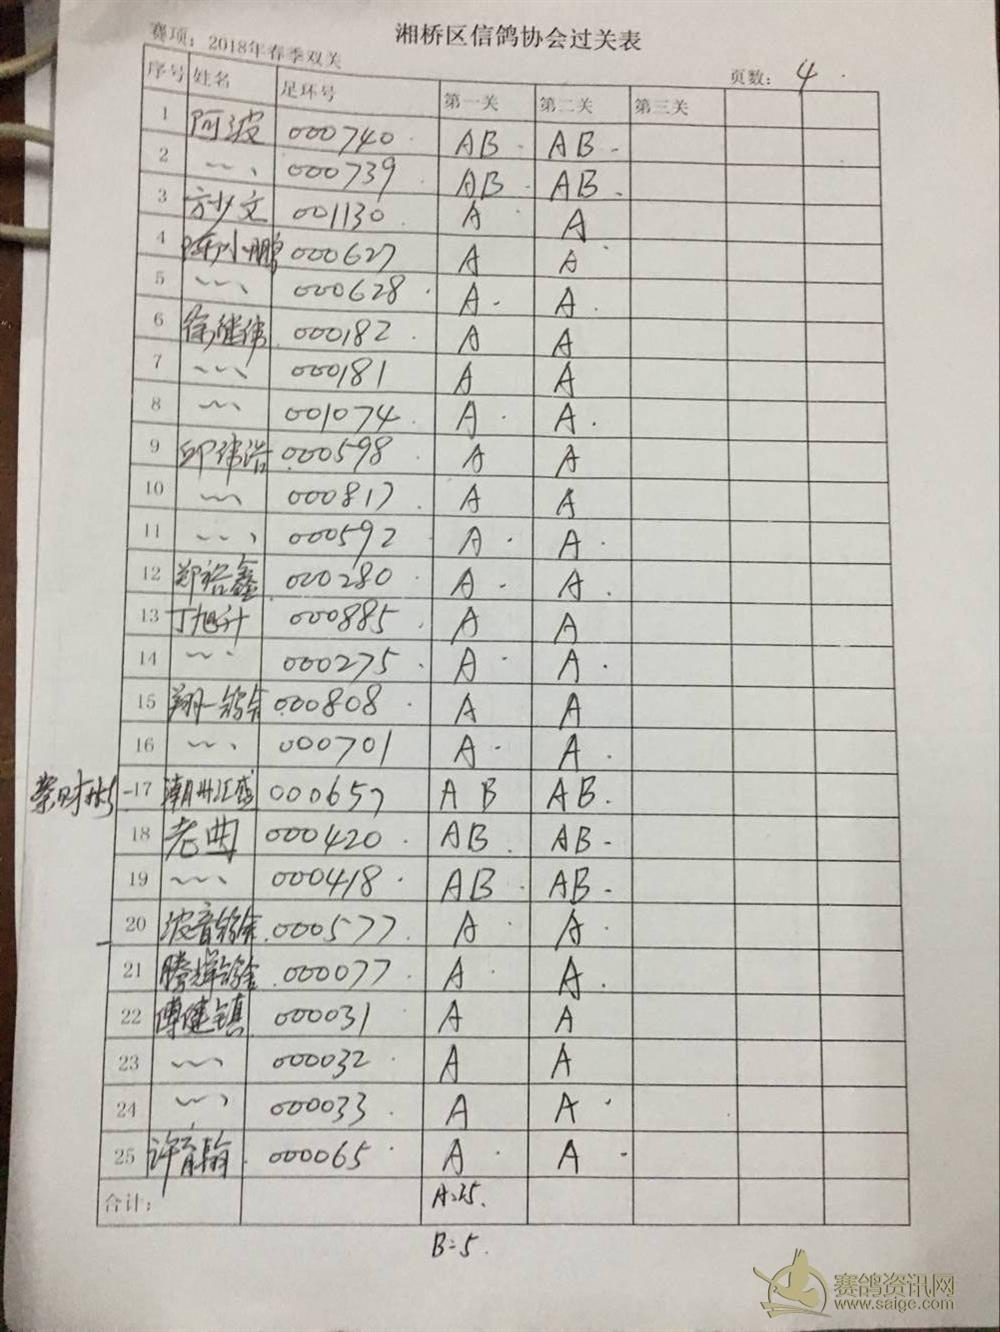 湘桥区信鸽协会过关表
赛项：2018年春季双关
页数：4
序号 姓名 足环号 第一关 第二关 第三关
1 阿波 000740 AB AB
2 〃 000739 AB AB
3 方少文 001130 A A
4 陈小鹏 000627 A A
5 〃 000628 A A
6 徐继伟 000182 A A
7 〃 000181 A A
8 〃 001074 A A
9 邱伟浩 000598 A A
10 〃 000817 A A
11 〃 000592 A A
12 郑裕鑫 000280 A A
13 丁旭升 000885 A A
14 〃 000275 A A
15 翔一鸽舍 000808 A A
16 〃 000701 A A
蔡财彬 17 潮州汇盛 000657 AB AB
18 老曲 000420 AB AB
19 〃 000418 AB AB
20 波音鸽舍 000577 A A
21 腾辉鸽舍 000077 A A
22 傅健镇 000031 A A
23 〃 000032 A A
24 〃 000033 A A
25 许 000065 A A
合计： A=25.
B=5.
赛鸽资讯网
www.saige.com